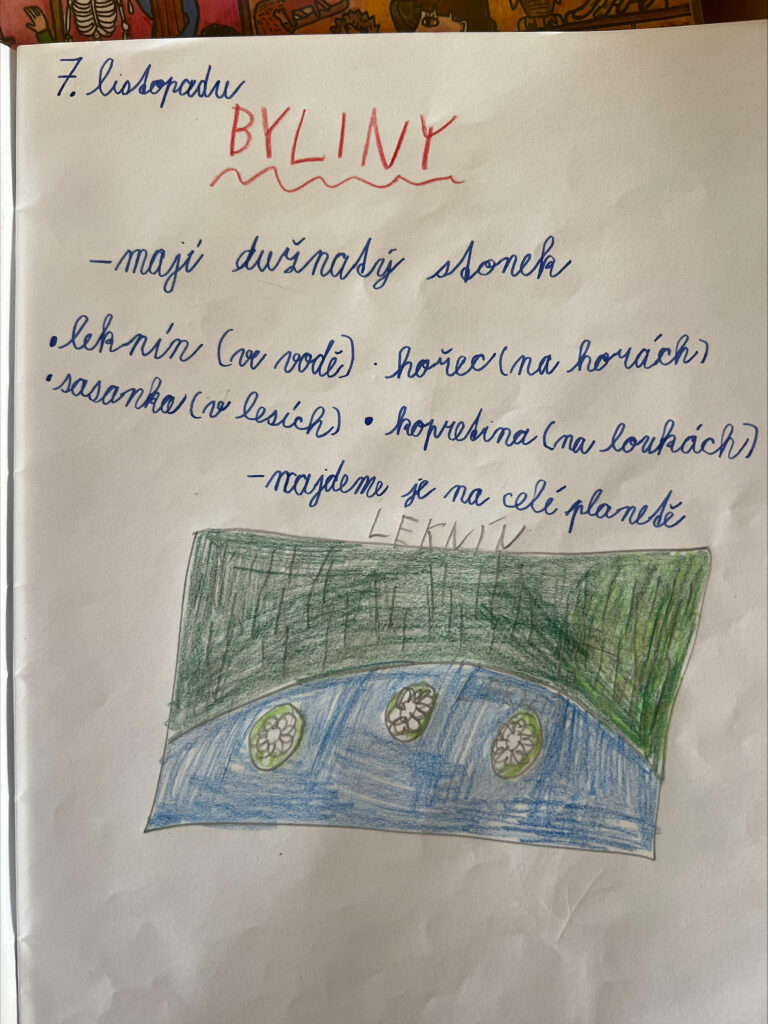 7. listopadu
BYLINY
-mají dužnatý stonek
•leknín (ve vodě) • hořec (na horách)
•sasanka (v lesích) • kopretina (na loukách)
-najdeme je na celé planetě
LEKNÍN